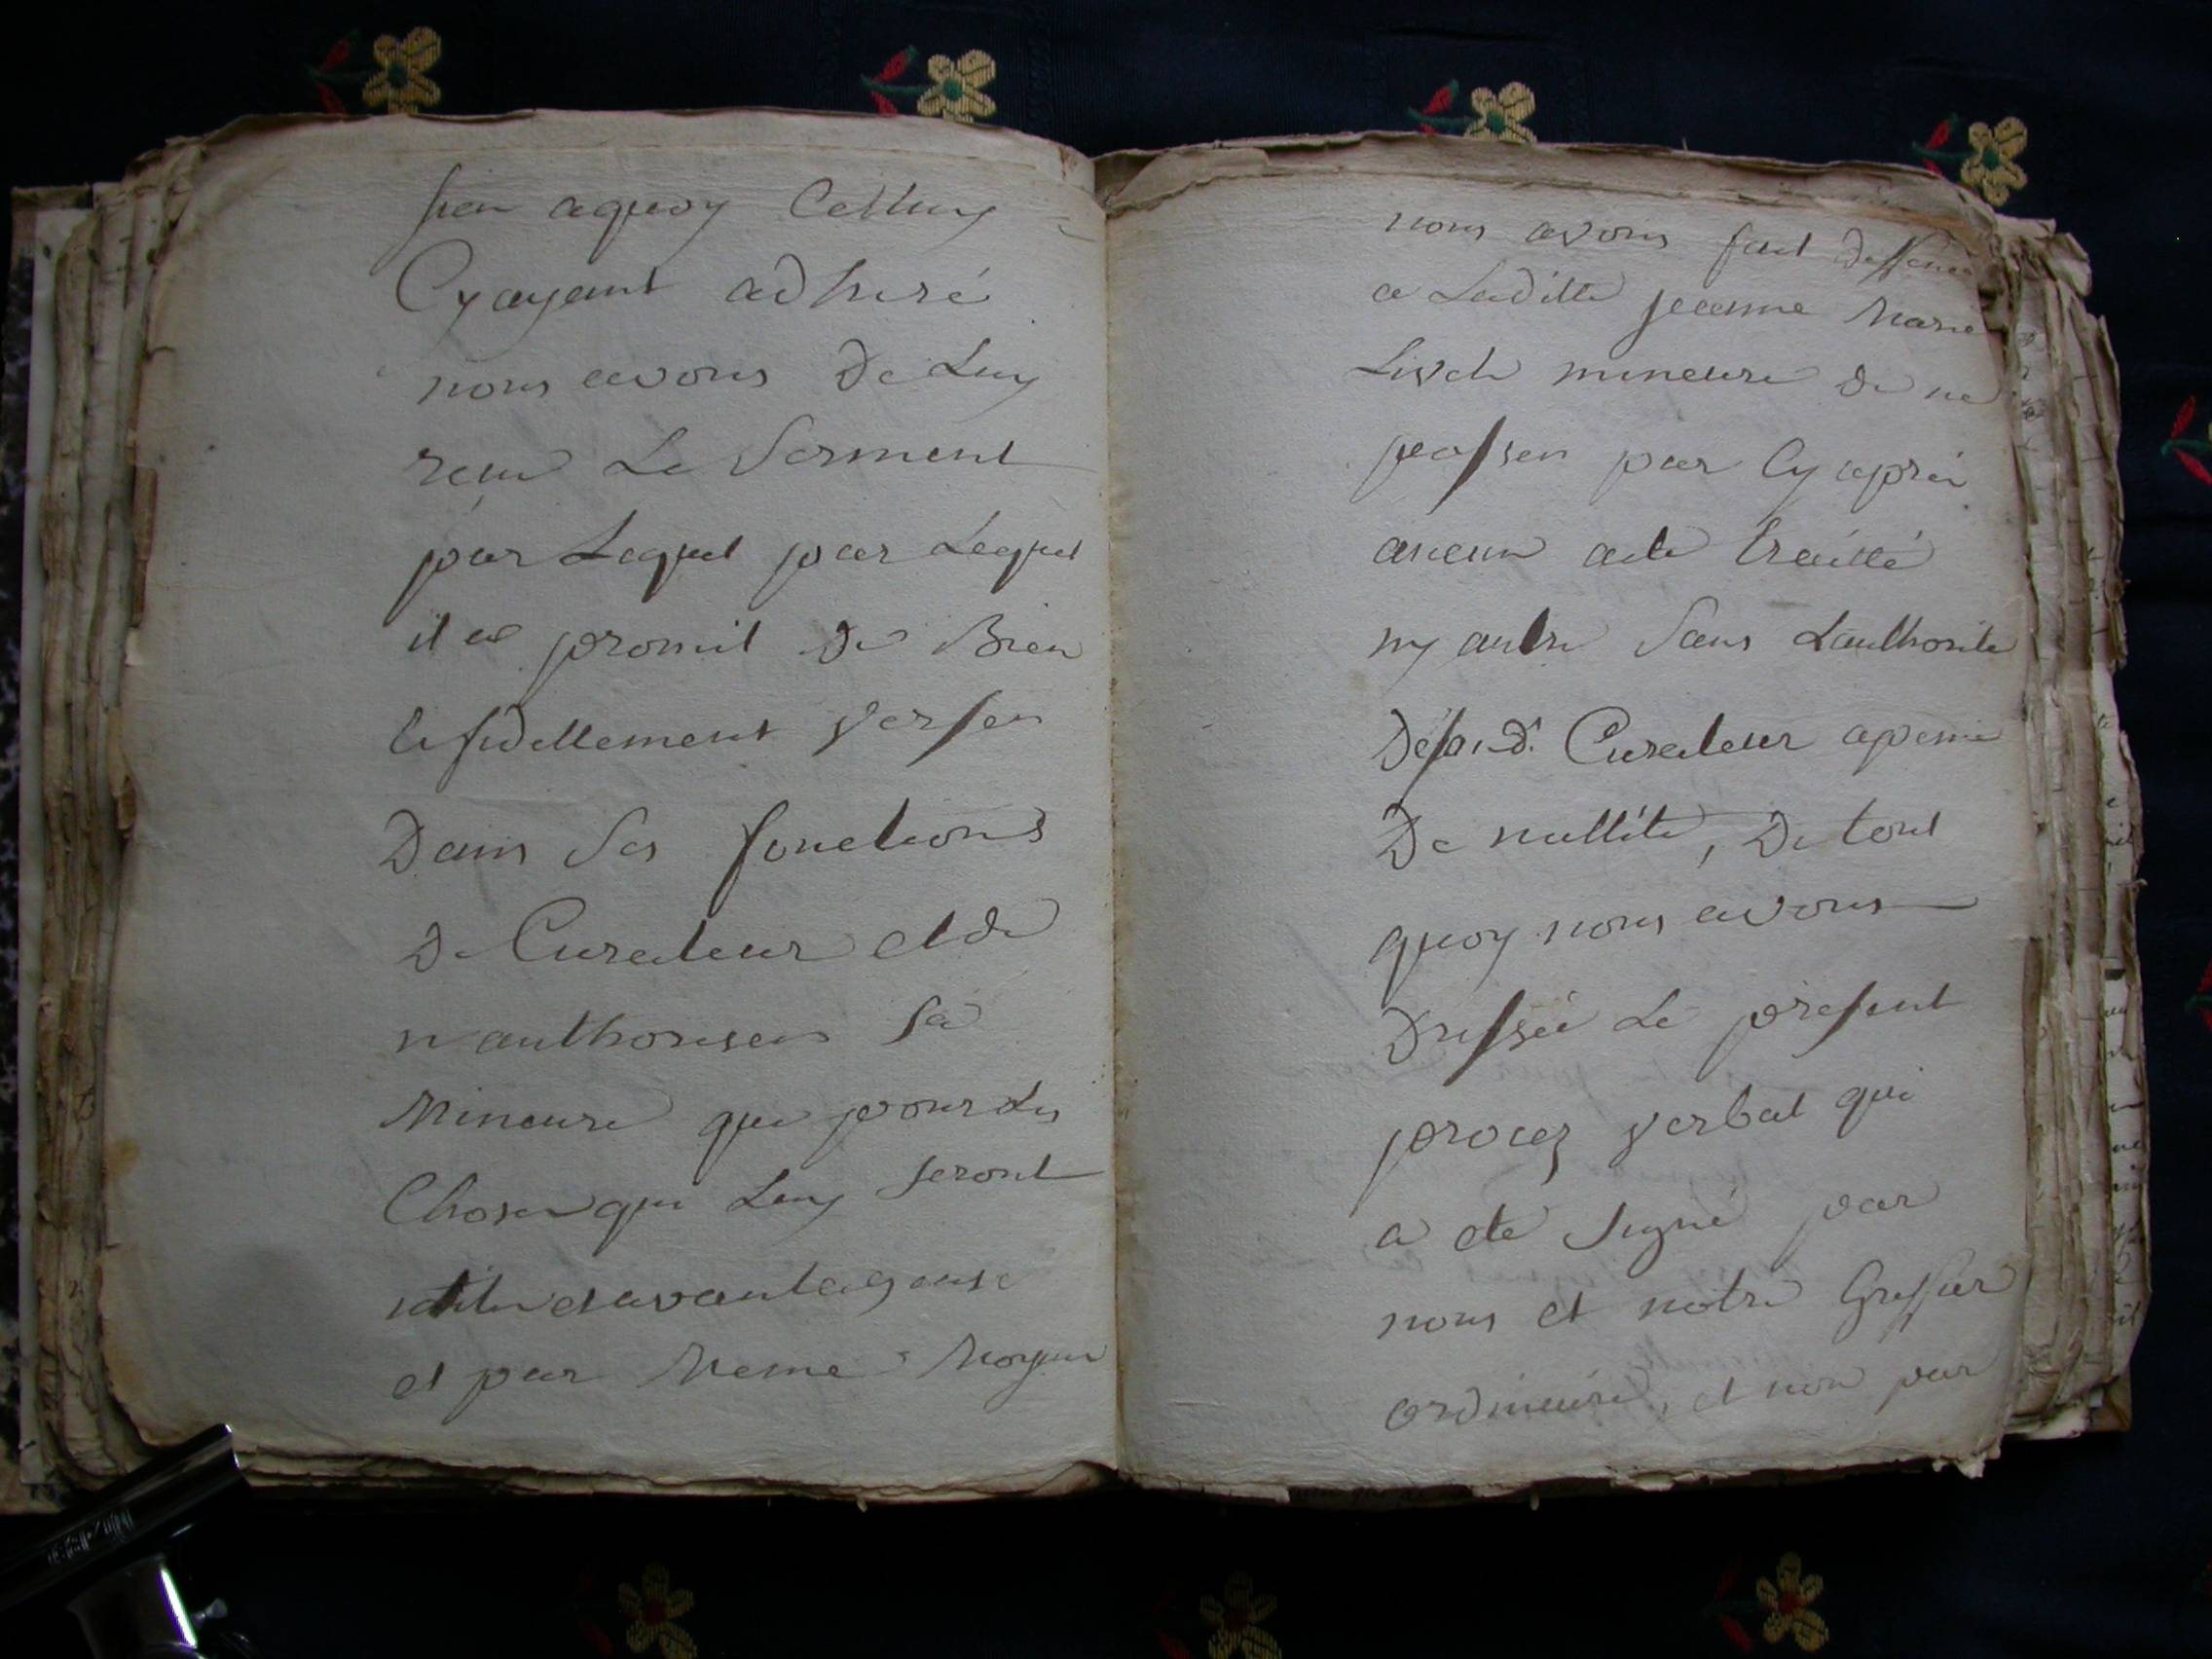 sien aquoy Celluy
Cy ayant adheré
nous avons De Luy
receu Le Serment
par Lequel par Lequel
il a promit De Bien
et fidellement verser
Dans Ses fonctions
De Curateur et de
n'authoriser Sa
Mineure que pour Les
Choses qui Luy seront
utiles et avantageuse
et par Meme Moyen
nous avons fait Deffence
a Laditte jeanne Marie
mineure De ne
passer par Cy aprés
aucun acte traitté
ny autre Sans Lauthorite
De son d. Curateur apeine
De nullité, De tout
quoy nous avons
Dressé Le present
procez verbal qui
a eté Signé par
nous et notre Greffier
ordinaire, et non par